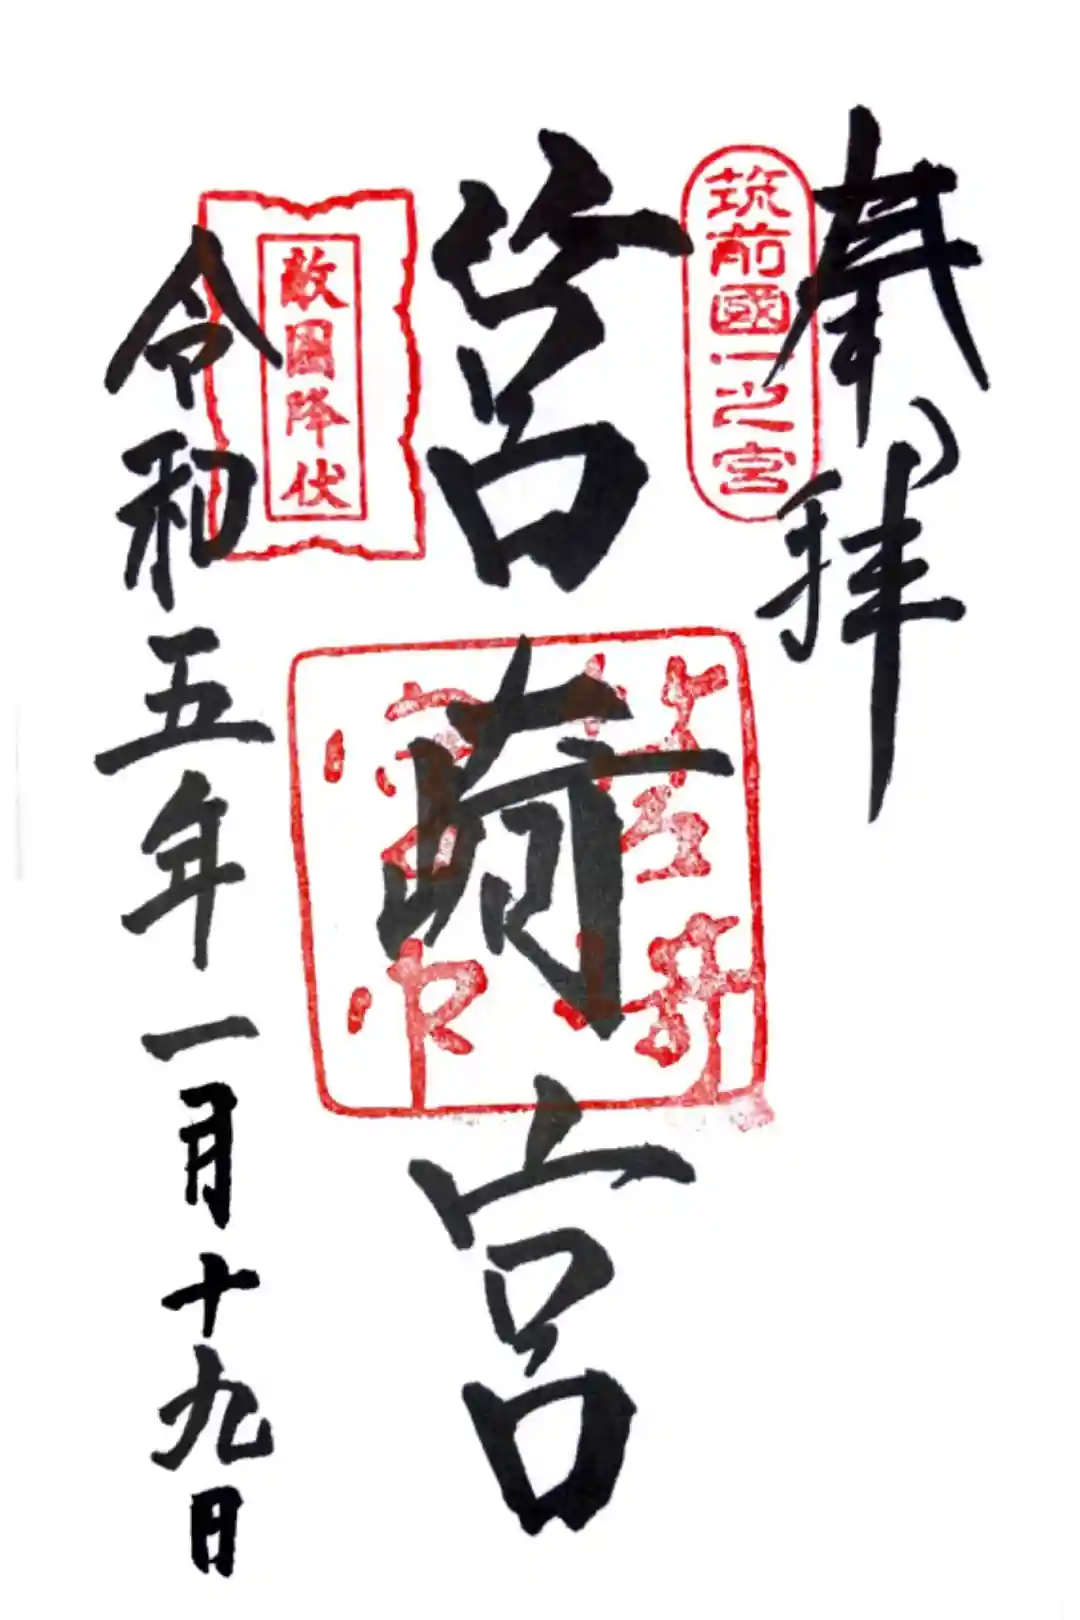 奉拝
筑前國一之宮
筥崎宮
敵國降伏
令和五年一月十九日